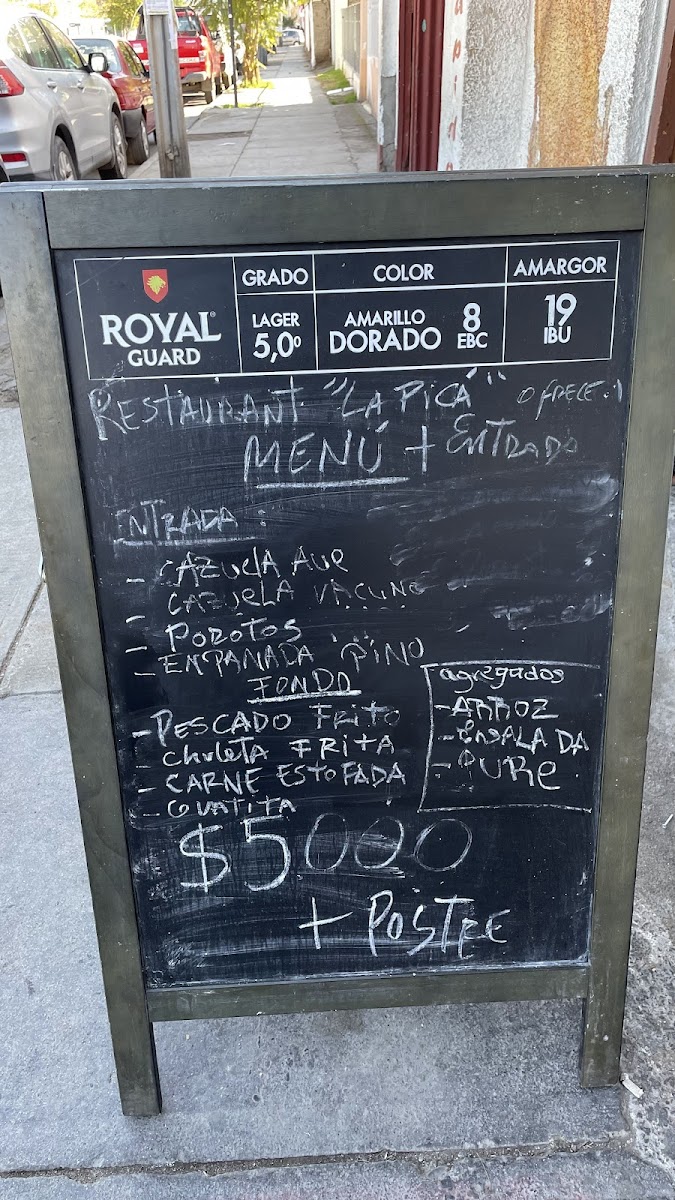 ROYAL
GUARD
GRADO
LAGER
5,0º
COLOR
AMARILLO
DORADO
8
EBC
AMARGOR
19
IBU
RESTAURANT "LA PICÁ" OFRECE.
MENÚ + ENTRADA
ENTRADA:
- CAZUELA AVE
- CAZUELA VACUNO
- POROTOS
- EMPANADA PINO
FONDO
- PESCADO FRITO
- CHULETA FRITA
- CARNE ESTOFADA
- GUATITA
agregados
- ARROZ
- ENSALADA
- PURE
$5000
+ POSTRE